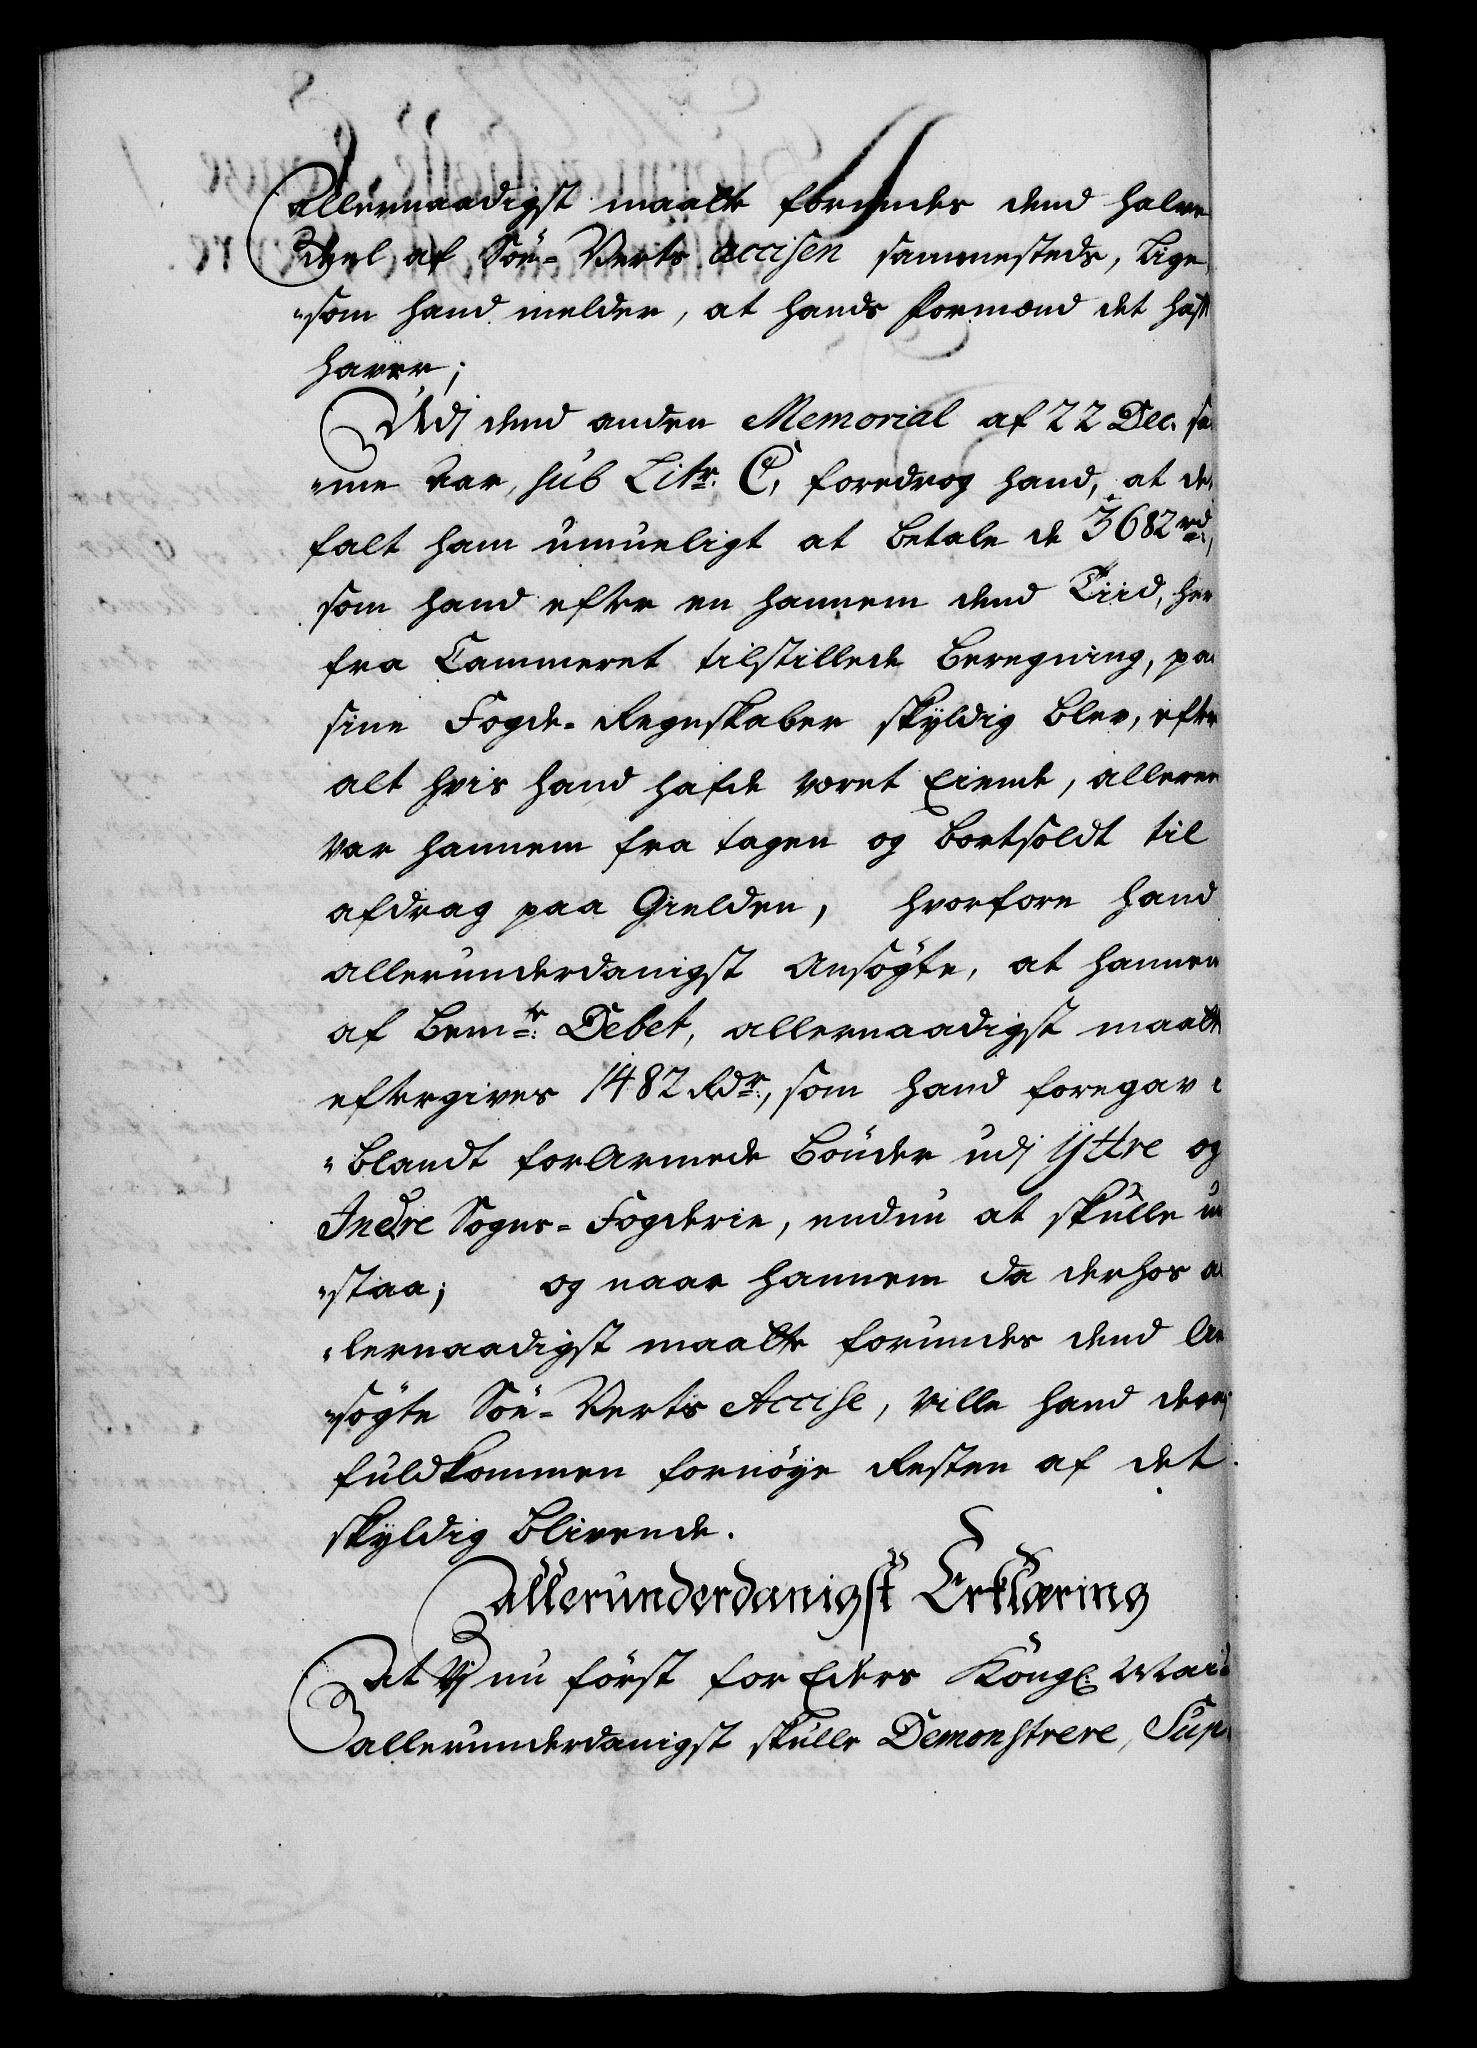 allernaadigst maatte forundes dend halve
deel af Söe-Verts accisen sammesteds, lige
"som hand melder, at hands formænd det haft
haver;
Udj dend anden Memorial af 22 Dec. sa
"me Aar, sub Litr. C, foredrog hand, at de
falt ham umueligt at betale de 3682 rd,
som hand efter en hannem dend Tiid, her
fra Cammeret tilstillede beregning, paa
sine Fogde-Regnskaber skyldig blev, efter
alt hvis hand hafde været Eiende, allerede
var hannem fra tagen og bortsoldt til
afdrag paa Gielden, hvorfore hand
allerunderdanigst ansögte, at hannem
af bemte: Debet, allernaadigst maatte
eftergives 1482 Rdr:, som hand foregav i
"blandt forarmede bönder udj Yttre og
Indre Sogns-Fogderie, endnu at skulle u
"staa; og naar hannem da derhos al
"lernaadigst maatte forundes dend an
"sögte Söe-Verts Accise, ville hand der
fuldkommen fornöye Resten af det
skyldig blivende.
allerunderdanigst Erklæring
At Vj nu först for Eders Kongl: Mai
allerunderdanigst skulle Demonstrere, Sup